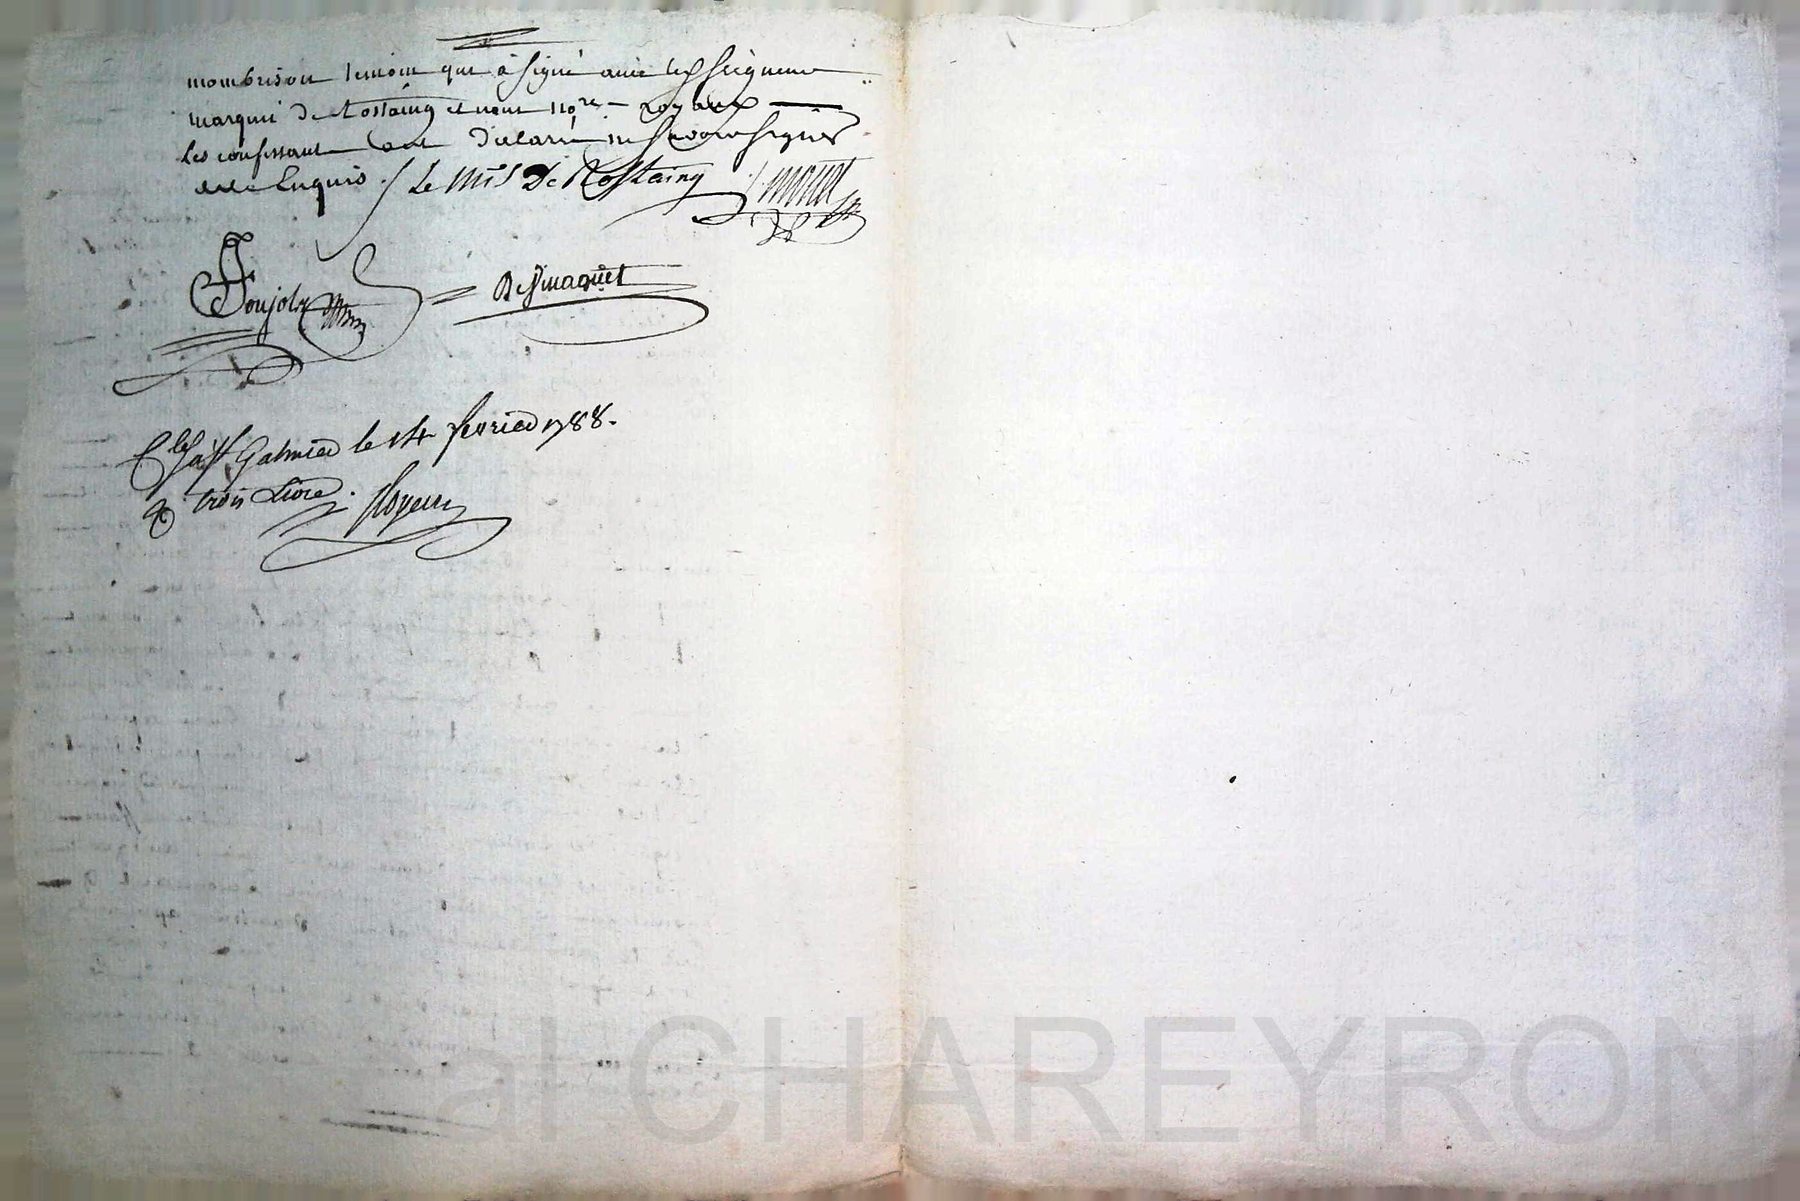 montbrison temoin qui à signé avec led seigneur
marquis de Rostaing et nous nore royaux
Les confessant ont déclaré ne savoir signer
de ce Enquis ./ Le Mis De Rostaing
Poujolz = Desmaquet
Clé à St Galmier le 14 fevrier 1788.
R trois Livre. Royeur
al CHAREYRON